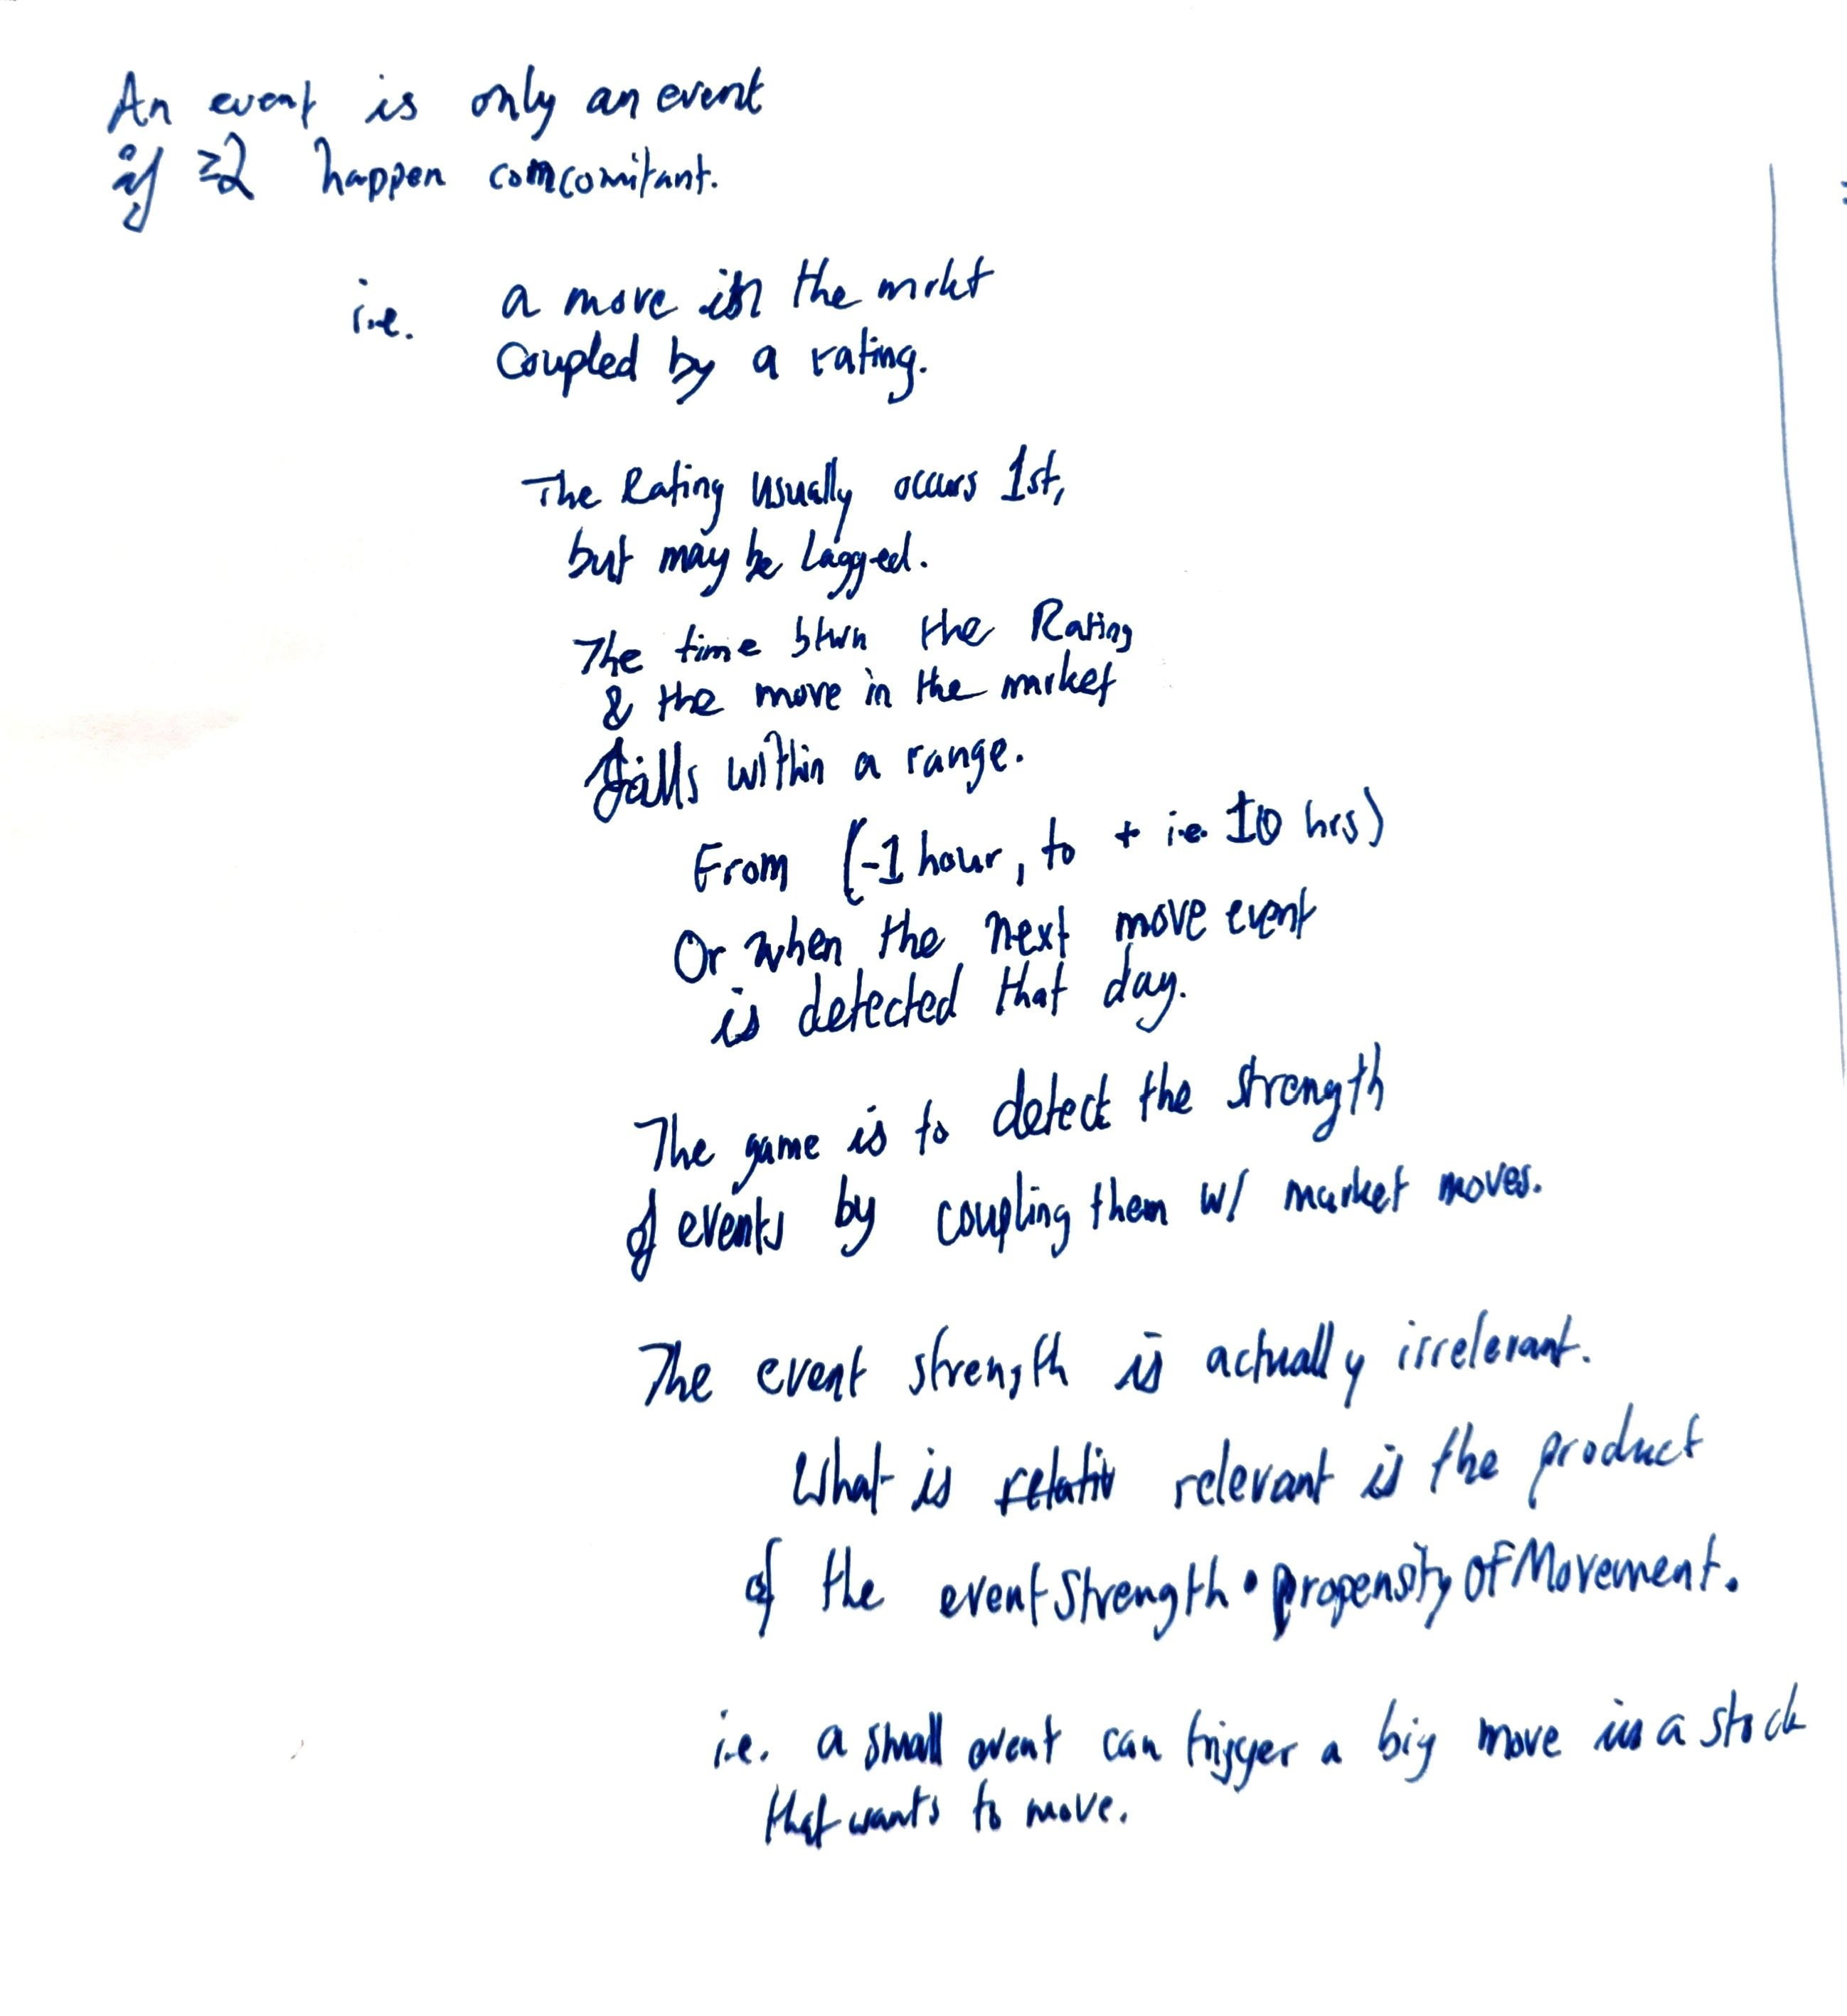 An event is only an event
if ≥2 happen comcomitant.
i.e. a move in the mrkt
Coupled by a rating.
The Rating usually occurs 1st,
but may be lagged.
The time btwn the Rating
& the move in the market
falls within a range.
From (-1 hour, to + i.e. 10 hrs)
Or when the next move event
is detected that day.
The game is to detect the strength
of events by coupling them w/ market moves.
The event strength is actually irrelevant.
What is relativ relevant is the product
of the event strength • propensity of Movement.
i.e. a small event can trigger a big move in a stock
that wants to move.